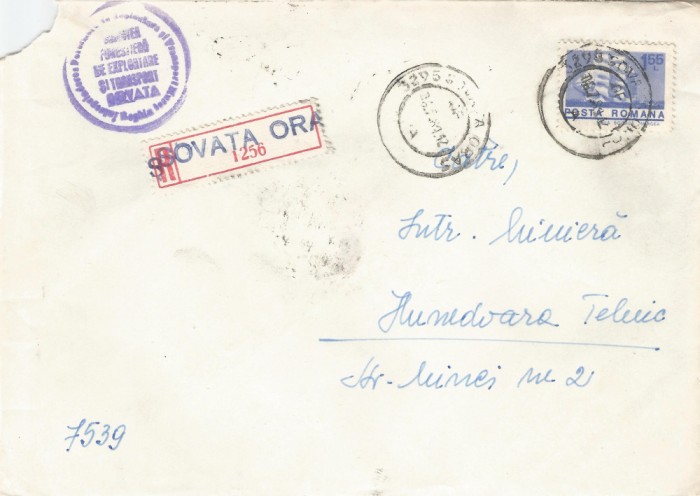 FORESTIERĂ
DE EXPLOATARE
ȘI TRANSPORT
SOVATA
1,55
POSTA ROMANA
SOVATA ORA
R 1256
3295 SOVATA ORAȘ
Către,
Intr. Minieră
Hunedoara Teliuc
Str. Minei nr. 2
7539